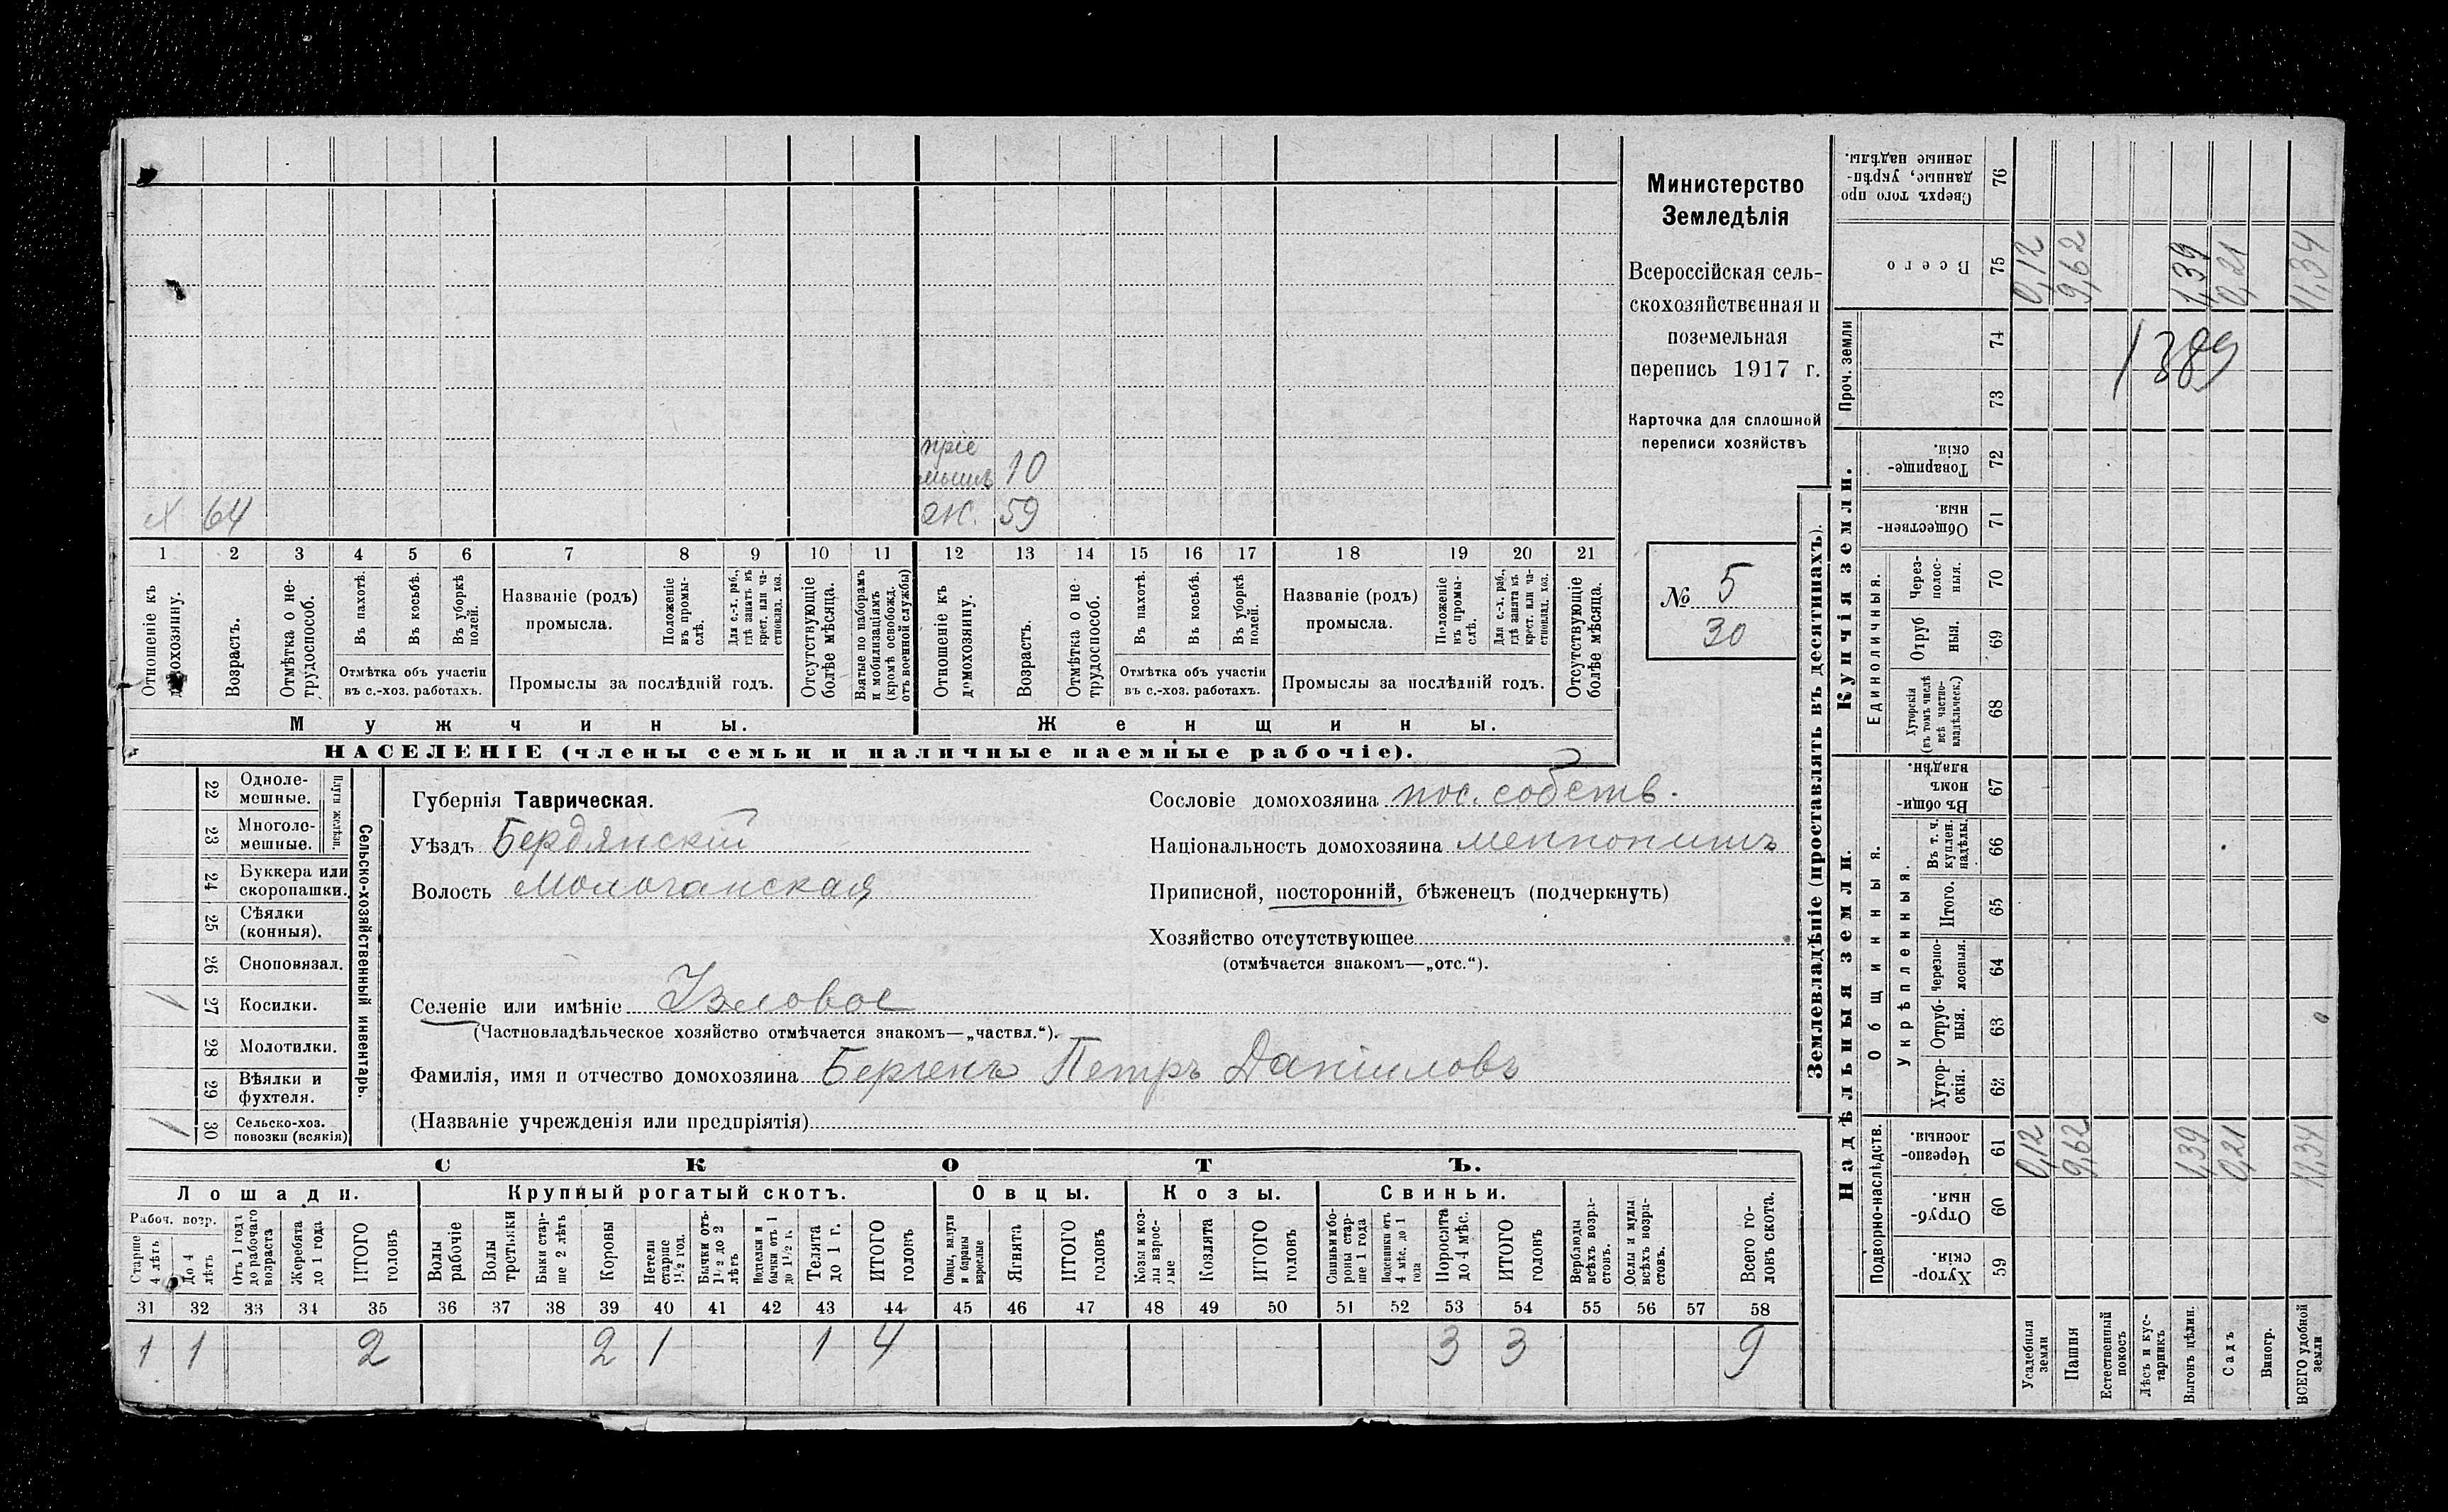 Министерство
Земледѣлія
Всероссійская сель-
скохозяйственная и
поземельная
перепись 1917 г.
Карточка для сплошной
переписи хозяйствъ
№ 5
30
пріе
мышъ 10
64
ж. 59
1 2 3 4 5 6 7 8 9 10 11 12 13 14 15 16 17 18 19 20 21
Отношеніе къ домохозяину.
Возрастъ.
Отмѣтка о не-
трудоспособ.
Въ пахотѣ.
Въ косьбѣ.
Въ уборкѣ
полей.
Отмѣтка объ участіи
въ с.-хоз. работахъ.
Названіе (родъ)
промысла.
Положеніе
въ промы-
слѣ.
Для с.-х. раб.,
гдѣ занятъ въ
крест. или ча-
стновлад. хоз.
Промыслы за послѣдній годъ.
Отсутствующіе
болѣе мѣсяца.
Взятые по наборамъ
и мобилизаціямъ
(кромѣ освобожд.
отъ военной службы)
Отношеніе къ
домохозяину.
Возрастъ.
Отмѣтка о не-
трудоспособ.
Въ пахотѣ.
Въ косьбѣ.
Въ уборкѣ
полей.
Отмѣтка объ участіи
въ с.-хоз. работахъ.
Названіе (родъ)
промысла.
Положеніе
въ промы-
слѣ.
Для с.-х. раб.,
гдѣ занята въ
крест. или ча-
стновлад. хоз.
Промыслы за послѣдній годъ.
Отсутствующіе
болѣе мѣсяца.
Мужчины.
Женщины.
НАСЕЛЕНІЕ (члены семьи и наличные наемные рабочіе).
Сельско-хозяйственный инвентарь.
Плуги желѣзн.
22 Одноле-
мешные.
23 Многоле-
мешные.
24 Буккера или
скоропашки.
25 Сѣялки
(конныя).
26 Сноповязал.
1 27 Косилки.
28 Молотилки.
29 Вѣялки и
фухтеля.
1 30 Сельско-хоз.
повозки (всякія)
Губернія Таврическая.
Уѣздъ Бердянскій
Волость Молочанская
Сословіе домохозяина пос. собств.
Національность домохозяина меннонитъ
Приписной, посторонній, бѣженецъ (подчеркнуть)
Хозяйство отсутствующее
(отмѣчается знакомъ—„отс.“).
Селеніе или имѣніе Узловое
(Частновладѣльческое хозяйство отмѣчается знакомъ—„частвл.“).
Фамилія, имя и отчество домохозяина Бергенъ Петръ Даніиловъ
(Названіе учрежденія или предпріятія)
СКОТЪ.
Лошади.
Крупный рогатый скотъ.
Овцы.
Козы.
Свиньи.
Рабоч. возр.
Старше
4 лѣтъ
До 4
лѣтъ
Отъ 1 года
до рабочаго
возраста
Жеребята
до 1 года
ИТОГО
головъ
Волы
рабочіе
Волы
третьяки
Быки стар-
ше 2 лѣтъ
Коровы
Нетели
старше
1½ год.
Бычки отъ
1½ до 2
лѣтъ
Подтелки и
бычки отъ 1
до 1½ л.
Телята
до 1 г.
ИТОГО
головъ
Овцы, валухи
и бараны
взрослые
Ягнята
ИТОГО
головъ
Козы и коз-
лы взрос-
лые
Козлята
ИТОГО
головъ
Свиньи и бо-
ровы стар-
ше 1 года
Подсвинки отъ
4 мѣс. до 1
года
Поросята
до 4 мѣс.
ИТОГО
головъ
Верблюды
всѣхъ возра-
стовъ.
Ослы и мулы
всѣхъ возра-
стовъ.
Всего го-
ловъ скота.
31 32 33 34 35 36 37 38 39 40 41 42 43 44 45 46 47 48 49 50 51 52 53 54 55 56 57 58
1 1 2 2 1 1 4 3 3 9
Землевладѣніе (проставлять въ десятинахъ).
Сверхъ того про
данные, укрѣп-
ленные надѣлы.
76
Всего
75 0,12 9,62 1,39 0,21 11,34
Проч. земли
74
73
1389
Купчія земли.
Товарище-
скія.
72
Обществен-
ныя.
71
Единоличныя.
Через-
полос-
ныя.
70
Отруб
ныя.
69
Хуторскія
(въ томъ числѣ
всѣ частно-
владѣльческ.)
68
Надѣльныя земли.
Общинныя.
Въ общи-
номъ
владѣн.
67
Укрѣпленныя.
Въ т. ч.
куплен.
надѣлы.
66
Итого.
65
Черезпо-
лосныя.
64
Отруб-
ныя.
63
Хутор-
скія.
62
Подворно-наслѣдств.
Черезпо-
лосныя.
61 0,12 9,62 1,39 0,21 11,34
Отруб-
ныя.
60
Хутор-
скія.
59
Усадебныя
земли
Пашня
Естественный
покосъ
Лѣсъ и кус-
тарникъ
Выгонъ цѣлин.
Садъ
Виногр.
ВСЕГО удобной
земли